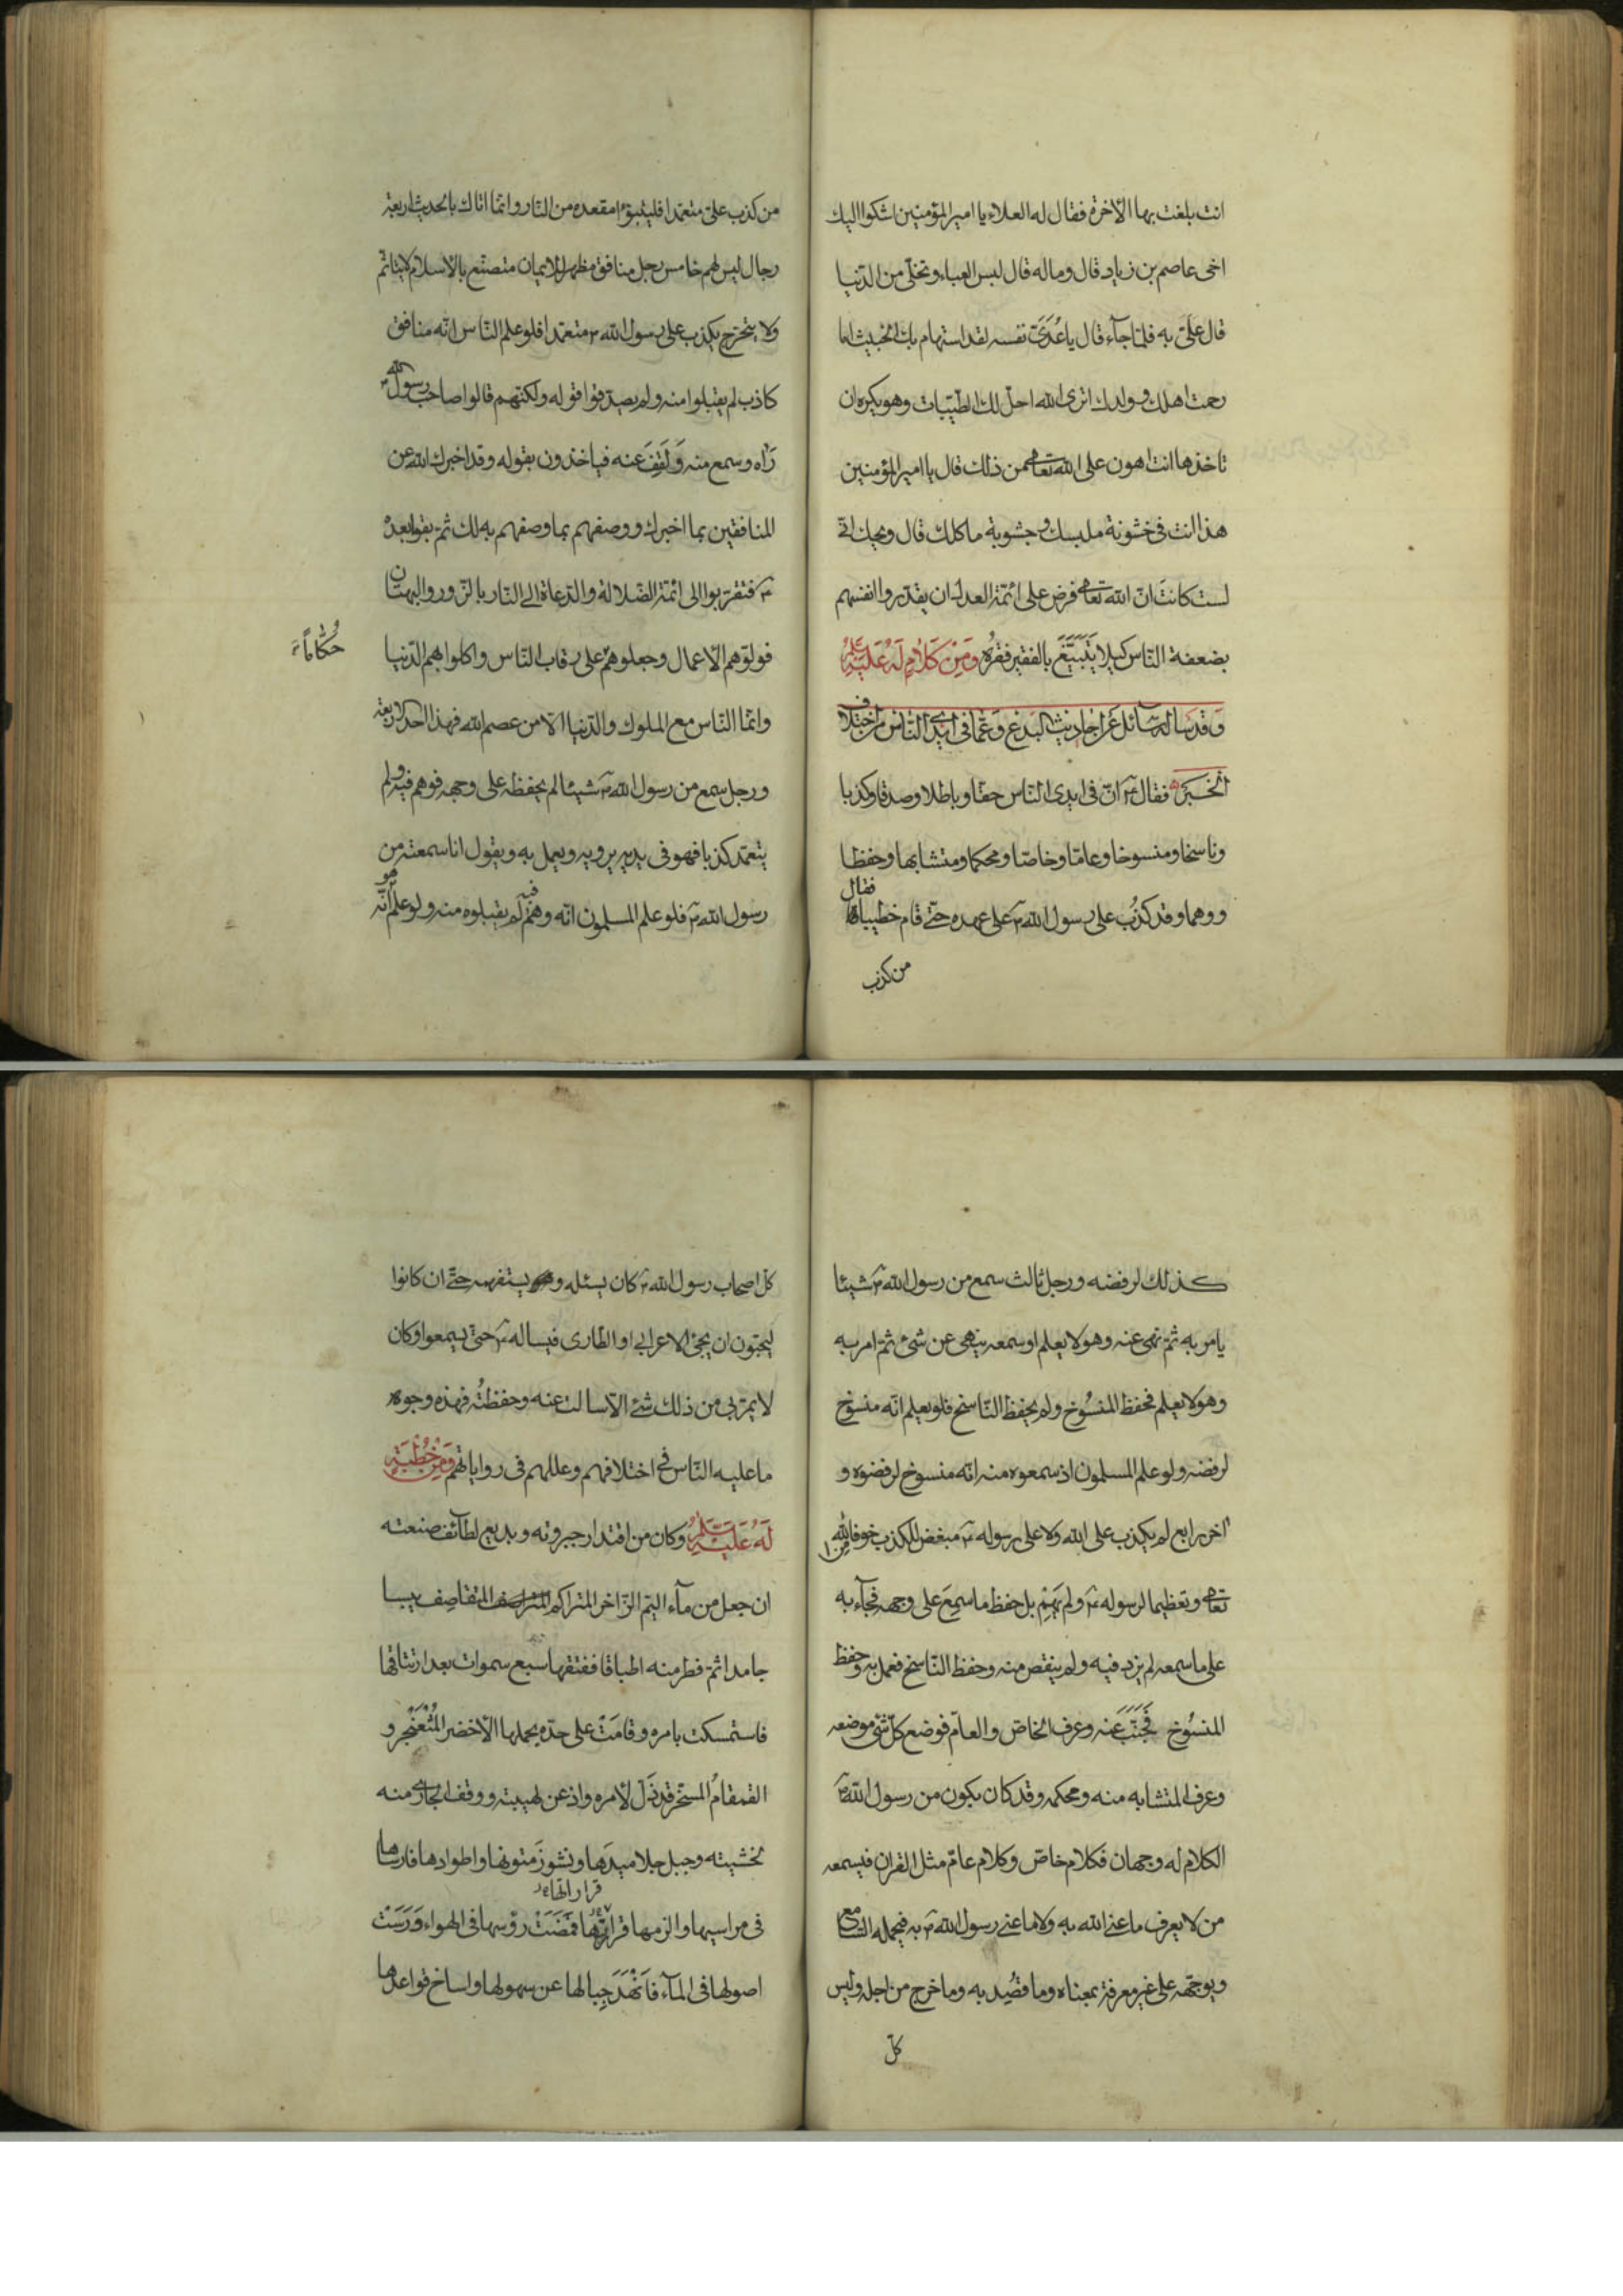 انت بلغت بها الآخرة فقال له العلاء يا امير المؤمنين اشكوا اليك
اخى عاصم بن زياد قال وماله قال لبس العباء وتخلّى من الدّنيا
قال علىّ به فلمّا جآء قال يا عُدَىَّ نفسه لقد استهام بك الخبيث اما
رحمت اهلك وولدك اترى الله احلّ لك الطيّبات وهو يكره ان
تاخذها انت اهون على الله تعالى من ذلك قال يا امير المؤمنين
هذا انت فى خشونة ملبسك وجشوبة ماكلك قال ويحك انّى
لست كانتَ انّ الله تعالى فرض على ائمّة العدل ان يقدّروا انفسهم
بضعفة النّاس كيلا يَتَبَيَّغَ بالفقير فقرُه وَمِنْ كَلَامٍ لَهُ عَلَيْهِ السَّلَم
وَقد سَاله سَآئل عَن احَاديث البدع وَعَمّا فى ايدى النّاس من اختلاف
الخَبَر فقال ع انّ فى ايدى النّاس حقّا وباطلا وصدقا وكذبا
وناسخا ومنسوخا وعامّا وخاصّا ومحكما ومتشابها وحفظا
ووهما وقد كذُب على رسول الله ص على عهده حتّى قام خطيبا فقال
من كذب
من كذب علىّ متعمّدا فليتبوّء مقعده من النّار وانّما اتاك بالحديث اربعة
رجال ليس لهم خامس رجل منافق مظهر للايمان متصنّع بالاسلام لا يتاثّم
ولا يتحرّج يكذب على رسول الله ص متعمّدا فلو علم النّاس انّه منافق
كاذب لم يقبلوا منه ولم يصدّقوا قوله ولكنّهم قالوا صاحب رسول الله ص
رَآه وسمع منه وَلَقِفَ عنه فياخذون بقوله وقد اخبرك الله عن
المنافقين بما اخبرك ووصفهم بما وصفهم به لك ثمّ بقوا بعده
ع فتقرّبوا الى ائمّة الضّلالة والدّعاة الى النّار بالزّور والبهتان
فولّوهم الاعمال وجعلوهم على رقاب النّاس واكلوا بهم الدّنيا
حُكّاماً
وانّما النّاس مع الملوك والدّنيا الّا من عصم الله فهذا احد الاربعة
ورجل سمع من رسول الله ص شيئا لم يحفظه على وجهه فوهم فيه ولم
يتعمّد كذبا فهو فى يديه يرويه ويعمل به ويقول انا سمعته من
رسول الله ص فلو علم المسلمون انّه وهم فيه لم يقبلوه منه ولو علم هو انّه
كذلك لرفضه ورجل ثالث سمع من رسول الله ص شيئا
يامر به ثمّ نهى عنه وهو لا يعلم او سمعه ينهى عن شىء ثمّ امر به
وهو لا يعلم فحفظ المنسُوخ ولم يحفظ النّاسخ فلو يعلم انّه منسُوخ
لرفضه ولو علم المسلمون اذ سمعوه منه انّه منسوخ لرفضوه و
آخر رابع لم يكذب على الله ولا على رسوله ص مبغض للكذب خوفا من الله
تعالى وتعظيما لرسوله ص ولم يَهِمْ بل حفظ ما سمِعَ على وجهه فجآء به
على ما سمعه لم يزد فيه ولم ينقص منه وحفظ النّاسخ فعمل به وحفظ
المنسُوخ فَجَنَّبَ عَنه وعرف الخاصّ والعامّ فوضع كلّ شىء موضعه
وعرف المتشابه منه ومحكمه وقد كان يكون من رسول الله ص
الكلام له وجهان فكلام خاصّ وكلام عامّ مثل القران فيسمعه
من لا يعرف ما عنى الله به ولا ما عنى رسول الله ص به فيحمله السّامع
ويوجّهه على غير معرفة بمعناه وما قُصِد به وما خرج من اجله وليس
كلّ
كلّ اصحاب رسول الله ص كان يسئله ويستفهمه حتّى ان كانوا
ليحبّون ان يجىء الاعرابى او الطّارى فيساله ع حتّى يسمعوا وكان
لا يمرّ بى من ذلك شىء الّا سالت عنه وحفظتُه فهذه وجوه
ما عليه النّاس فى اختلافهم وعللهم فى رواياتهم وَمِنْ خُطْبَةٍ
لَهُ عَلَيْهِ السَّلَمُ وكان من اقتدار جبروته وبديع لطآئف صنعته
ان جعل من مآء اليمّ الزّاخر المتراكم المتقاصِف يبسا
جامدا ثمّ فطر منه اطباقا ففتقها سبع سموات بعد ارتتاقها
فاستمسكت بامره وقامَتْ على حدّه يحملها الاخضر المُثْعَنْجِر و
القمقامُ المسخّر قد ذَلّ لامره واذعن لهيبته ووقف الجارى منه
لخشيته وجبل جلاميدَها ونشوزَ متونها واطوادها فارساها
فى مراسيها والزمها قرارتها فمَضَتْ رؤسها فى الهواء وَرَسَتْ
قراراتها
اصولها فى المآء فَاَنْهَدَ جِبالها عن سهولها واساخ قواعدها